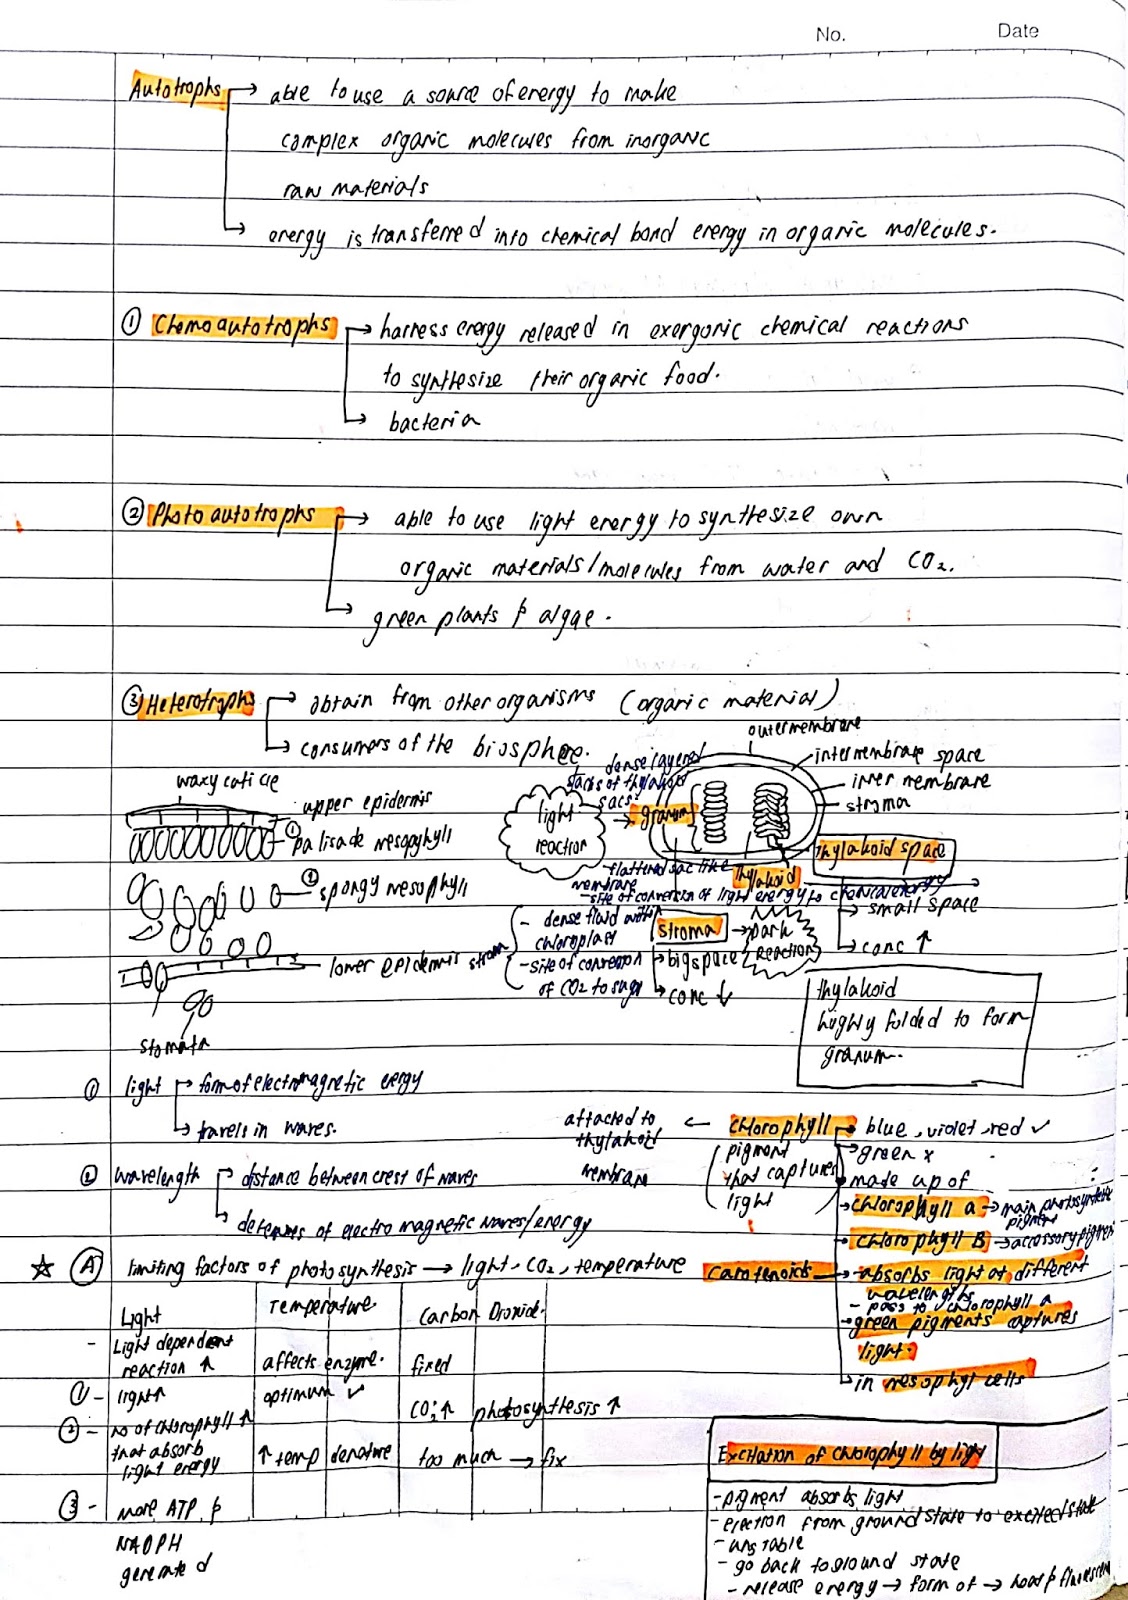 No.
Date
Autotrophs → able to use a source of energy to make
complex organic molecules from inorganic
raw materials
→ energy is transferred into chemical bond energy in organic molecules.
① Chemoautotrophs → harness energy released in exergonic chemical reactions
to synthesize their organic food.
→ bacteria
② Photoautotrophs → able to use light energy to synthesize own
organic materials/molecules from water and CO2.
→ green plants & algae.
③ Heterotrophs → obtain from other organisms (organic material)
→ consumers of the biosphere.
waxy cuticle
upper epidermis
① palisade mesophyll
② spongy mesophyll
lower epidermis
stomata
outer membrane
intermembrane space
inner membrane
stroma
dense layered
stacks of thylakoid
sacs.
light
reaction
→ granum
thylakoid space
→ small space
→ conc ↑
flattened sac like
membrane
thylakoid
- site of conversion of light energy to chemical energy
stroma
- dense fluid within
chloroplast
- site of conversion
of CO2 to sugar
stroma → dark
reaction
→ big space
→ conc ↓
thylakoid
highly folded to form
granum.
① light → form of electromagnetic energy
→ travels in waves.
② wavelength → distance between crest of waves
→ of electromagnetic waves/energy
attached to
thylakoid
membrane
← chlorophyll → blue, violet, red ✓
pigment
that captures
light
→ green x
→ made up of
→ chlorophyll a → main photosynthetic
pigment
→ chlorophyll B → accessory pigment
carotenoids → absorbs light at different
wavelengths
- pass to chlorophyll a
→ green pigments captures
light.
→ in mesophyl cells
☆ Ⓐ limiting factors of photosynthesis → light, CO2, temperature
Light
Temperature.
Carbon Dioxide.
- Light dependent
reaction ↑
affects enzyme.
fixed
①- light↑
optimum ✓
CO2↑ photosynthesis ↑
②- no of chlorophyll ↑
that absorb
light energy
↑ temp denature
too much → fix
③- more ATP &
NADPH
generated
Excitation of chlorophyll by light
- pigment absorbs light
- electron from ground state to excited state
- unstable
- go back to ground state
- release energy → form of → heat & fluorescence